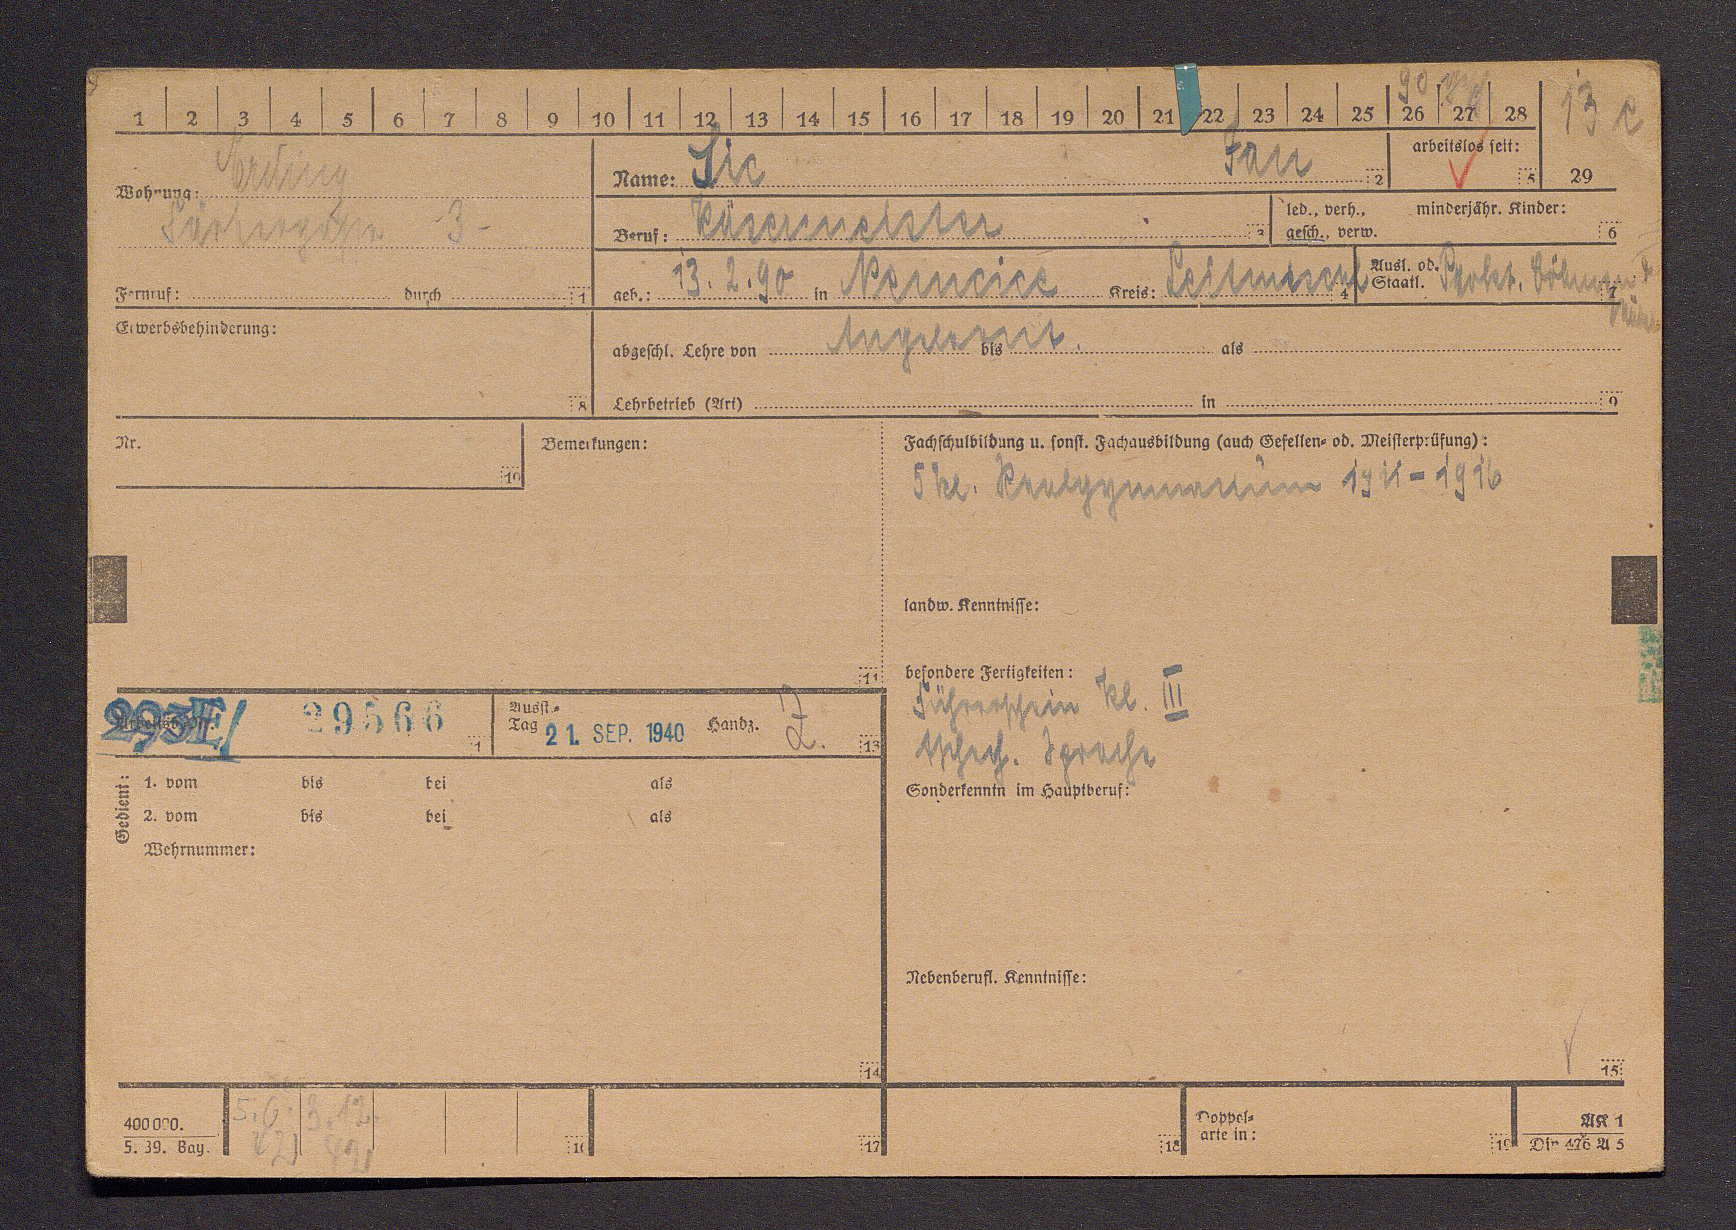 1 2 3 4 5 6 7 8 9 10 11 12 13 14 15 16 17 18 19 20 21 22 23 24 25 26 27 28
90
13 c
29
Wohnung: Erding
3 -
Fernruf: durch 1
Name: Sic Jan 2
arbeitslos seit: 5
Beruf: Käsermeister 3
led., verh., gesch., verw.
minderjähr. Kinder: 6
geb.: 13. 2. 90 in Nemcice Kreis: Leitmischl 4
Ausl. od. Staatl. Protkt. Böhmen 7
Erwerbsbehinderung: 8
abgeschl. Lehre von Angelernt. bis als
Lehrbetrieb (Art) in 9
Nr. 10
Bemerkungen: 11
Fachschulbildung u. sonst. Fachausbildung (auch Gesellen- od. Meisterprüfung):
5 kl. Realgymnasium 1911 - 1916
landw. Kenntnisse:
besondere Fertigkeiten:
Führerschein Kl. III
tschech. Sprache
Sonderkenntn im Hauptberuf:
Nebenberufl. Kenntnisse:
15
293E/ 29566
Ausst.-Tag 21. SEP. 1940 Handz. Z. 13
Gedient:
1. vom bis bei als
2. vom bis bei als
Wehrnummer:
14
400000.
5. 39. Bay.
5.6. 3.12.
42 42
16 17 18
Doppel-
arte in: 19
AK 1
Din 476 A 5